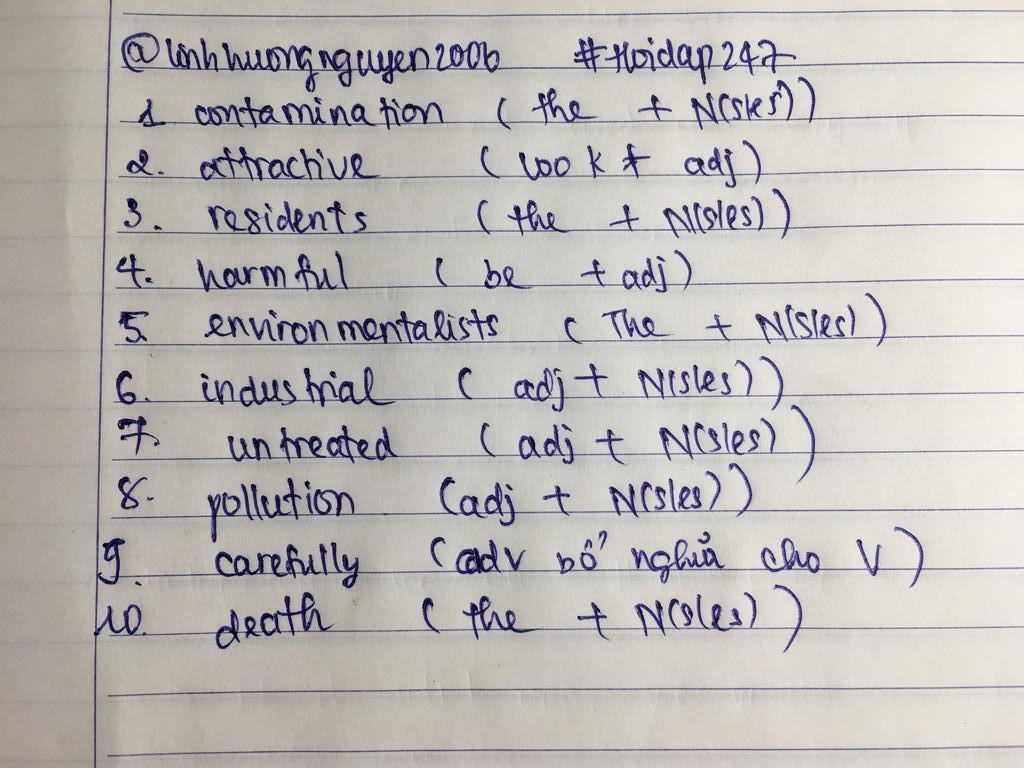 @linhhuongnguyen2006 #Hoidap247
1 contamination ( the + N(s/es))
2. attractive ( look + adj)
3. residents ( the + N(s/es))
4. harmful ( be + adj)
5. environmentalists ( The + N(s/es))
6. industrial ( adj + N(s/es))
7. untreated ( adj + N(s/es))
8. pollution (adj + N(s/es))
9. carefully (adv bổ nghĩa cho V)
10. death ( the + N(s/es))